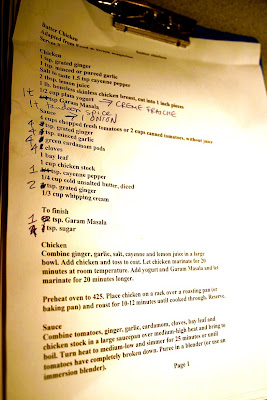 Butter Chicken
Adapted from
Serves
Chicken
1 tsp. grated ginger
1 tsp. minced or pureed garlic
Salt to taste 1.5 tsp cayenne pepper
2 tbsp. lemon juice
1 lb. boneless skinless chicken breast, cut into 1 inch pieces
1/2 cup plain yogurt → CRÈME FRAICHE
1t tsp Garam Masala
1t TANDOORI SPICE
Sauce → 1 ONION
4 cups chopped fresh tomatoes or 2 cups canned tomatoes, without juice
4 tsp. grated ginger
4 tsp. minced garlic
4 green cardamom pods
4 cloves
1 bay leaf
1 cup chicken stock
1 tsp. cayenne pepper
1/4 cup cold unsalted butter, diced
2 tsp. grated ginger
1/3 cup whipping cream
To finish
1 tsp. Garam Masala
4 tsp. sugar
Chicken
Combine ginger, garlic, salt, cayenne and lemon juice in a large
bowl. Add chicken and toss to coat. Let chicken marinate for 20
minutes at room temperature. Add yogurt and Garam Masala and let
marinate for 20 minutes longer.
Preheat oven to 425. Place chicken on a rack over a roasting pan (or
baking pan) and roast for 10-12 minutes until cooked through. Reserve.
Sauce
Combine tomatoes, ginger, garlic, cardamom, cloves, bay leaf and
chicken stock in a large saucepan over medium-high heat and bring to
boil. Turn heat to medium-low and simmer for 25 minutes or until
tomatoes have completely broken down. Puree in a blender (or use an
immersion blender).
Page 1